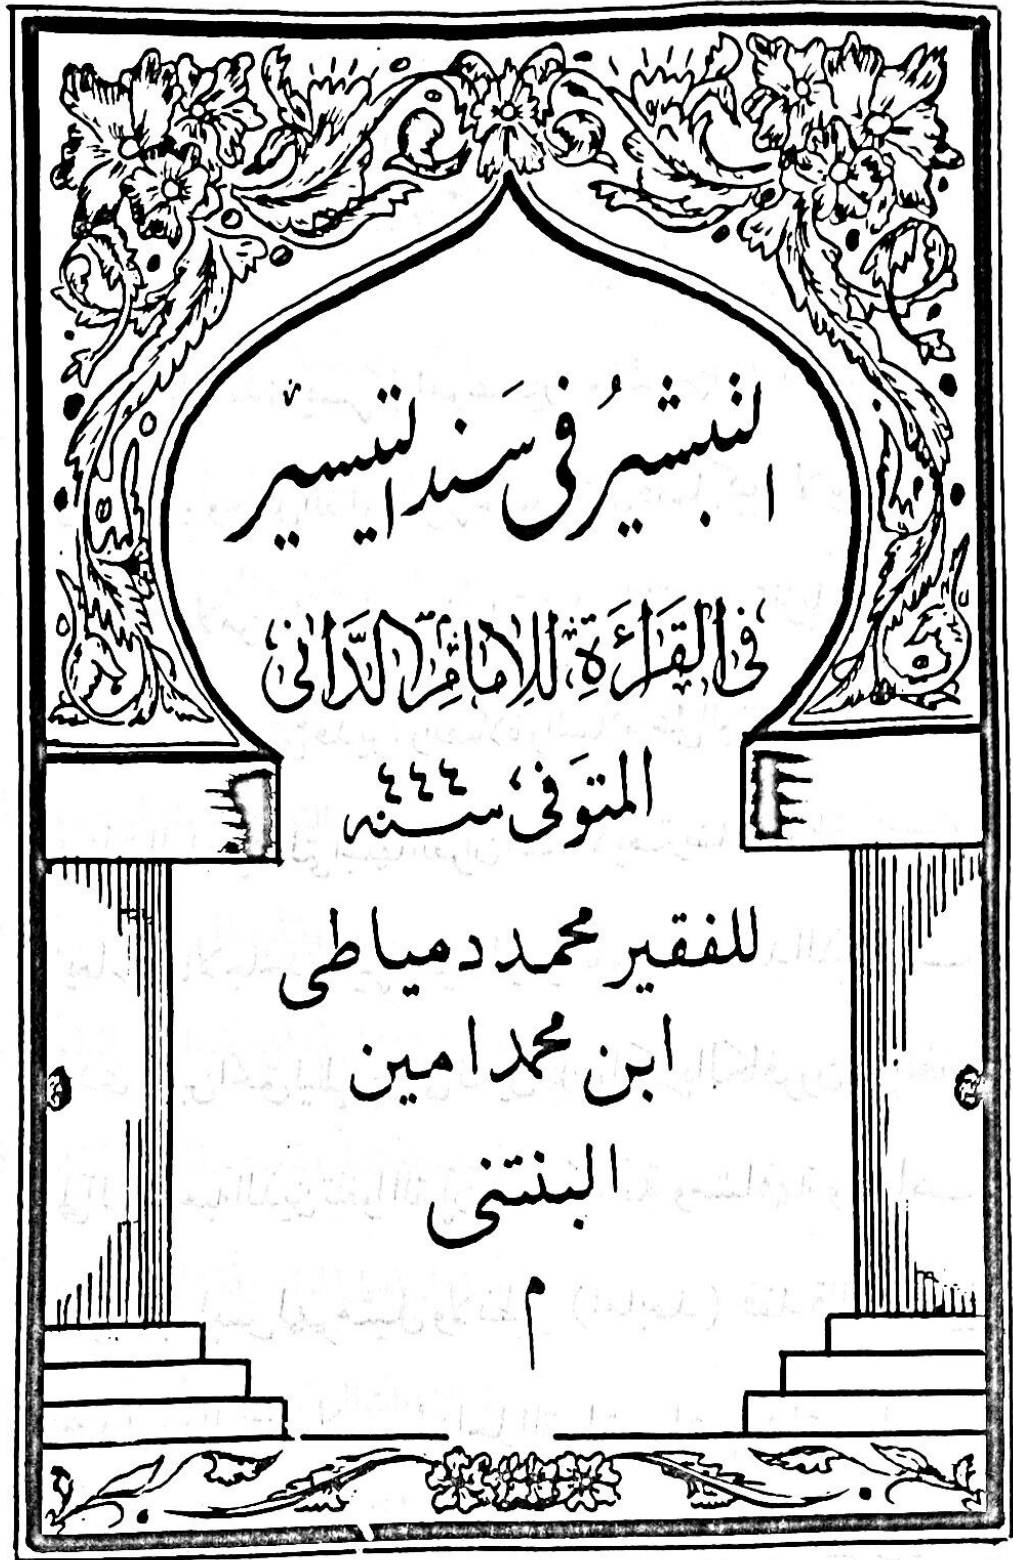 التبشير في سَند التيسير
في القَرَاءَةِ للإمام الدَّاني
المتوَفى سنه ٤٤٤
للفقير محمد دمياطي
ابن محمد امين
البنتني
م